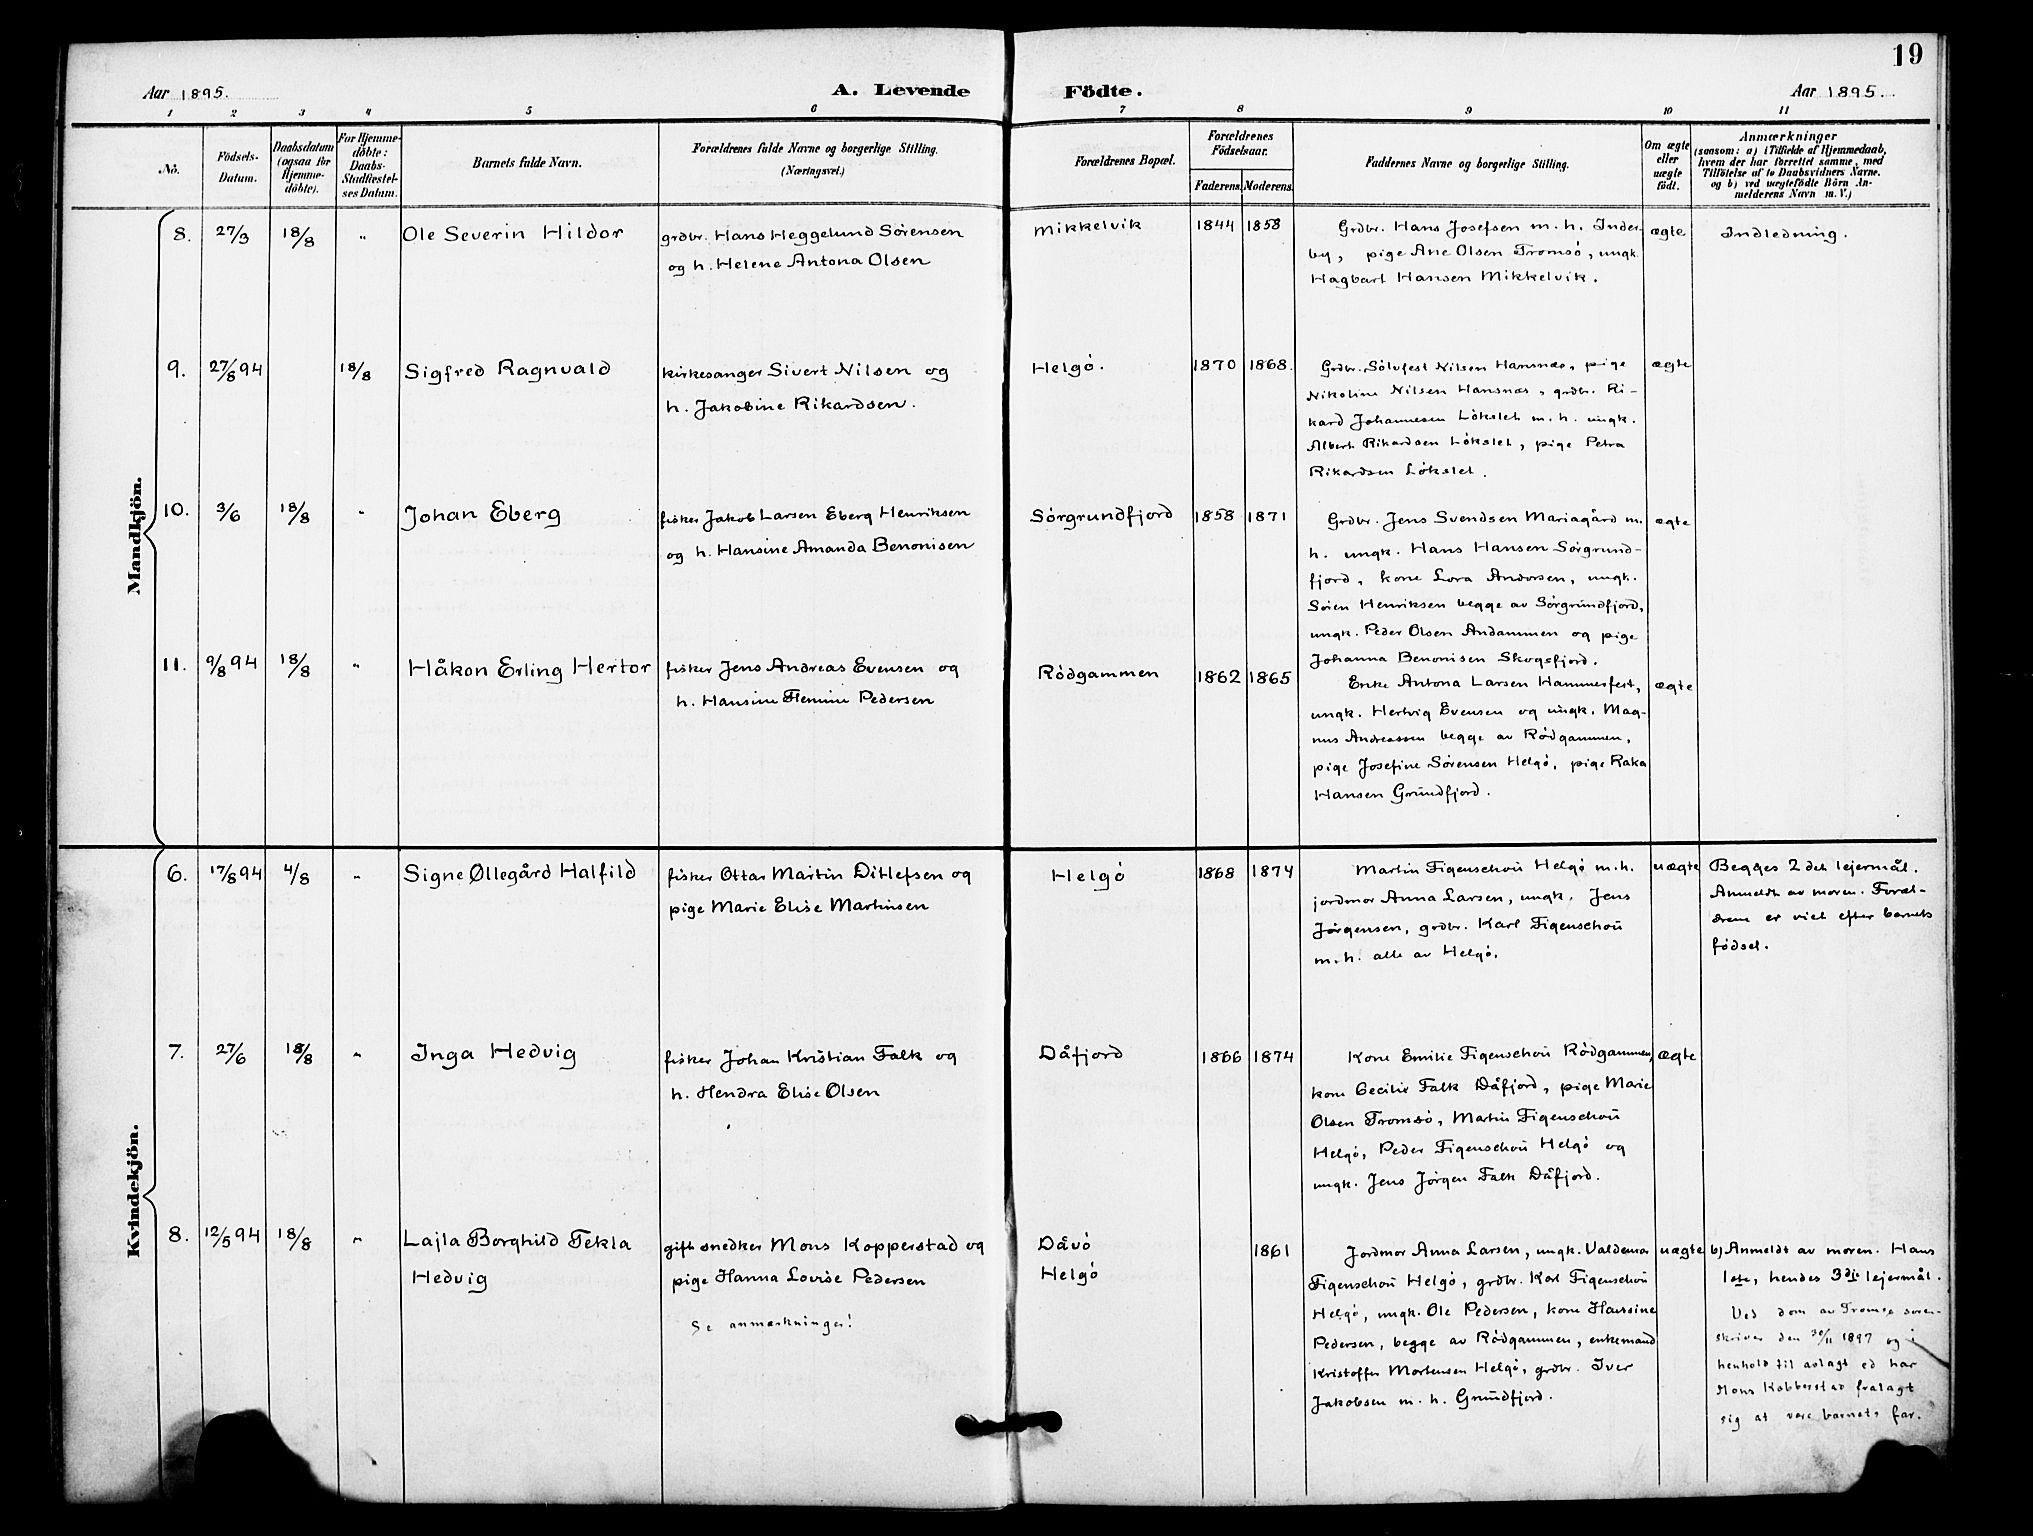 19
Aar 1895.
A. Levende Födte.
Aar 1895.
1 2 3 4 5 6 7 8 9 10 11
No.
Födsels-
Datum.
Daabsdatum
(ogsaa for
Hjemme-
döbte).
For Hjemme-
döbte:
Daabs-
Stadfæstel-
ses Datum.
Barnets fulde Navn.
Forældrenes fulde Navne og borgerlige Stilling.
(Næringsvei.)
Forældrenes Bopæl.
Forældrenes
Födselsaar.
Faderens. Moderens.
Faddernes Navne og borgerlige Stilling.
Om ægte
eller
uægte
født.
Anmærkninger
(saasom: a) i Tilfælde af Hjemmedaab,
hvem der har forrettet samme, med
Tilföielse af to Daabsvidners Navne.
og b) ved uægtefödte Börn An-
melderens Navn m. V.)
Mandkjön.
8. 27/3 18/8 " Ole Severin Hildor
grdbr. Hans Heggelund Sörensen
og h. Helene Antona Olsen
Mikkelvik 1844 1858
Grdbr. Hans Josefsen m. h. Inder-
by, pige Ane Olsen Tromsö, ungk.
Hagbart Hansen Mikkelvik.
ægte
Indledning.
9. 27/8 94 18/8 Sigfred Ragnvald
kirkesanger Sivert Nilsen og
h. Jakobine Rikardsen.
Helgö. 1870 1868.
Grdbr. Sölvfest Nilsen Hansnæs, pige
Nikoline Nilsen Hansnæs, grdbr. Ri-
kard Johannesen Lökslet m. h. ungk.
Albert Rikardsen Lökslet, pige Petra
Rikardsen Lökslet.
ægte
10. 3/6 18/8 " Johan Eberg
fisker Jakob Larsen Eberg Henriksen
og h. Hansine Amanda Benonisen
Sörgrundfjord 1858 1871
Grdbr. Jens Svendsen Mariagård m.
h. ungk. Hans Hansen Sörgrund-
fjord, kone Lora Andorsen, ungk.
Sören Henriksen begge av Sörgrundfjord,
ungk. Peder Olsen Andammen og pige
Johanna Benonisen Skogsfjord.
ægte
11. 9/8 94 18/8 " Håkon Erling Hertor
fisker Jens Andreas Evensen og
h. Hansine Flemine Pedersen
Rödgammen 1862 1865
Enke Antona Larsen Hammerfest,
ungk. Hertvig Evensen og ungk. Mag-
nus Andreassen begge av Rödgammen,
pige Josefine Sörensen Helgö, pige Raka
Hansen Grundfjord.
ægte
Kvindekjön.
6. 17/8 94 4/8 " Signe Øllegård Halfild
fisker Ottar Martin Ditlefsen og
pige Marie Elise Martinsen
Helgö 1868 1874
Martin Figenschou Helgö m. h.
jordmor Anna Larsen, ungk. Jens
Jörgensen, grdbr. Karl Figenschou
m. h. alle av Helgö.
uægte
Begges 2det lejermål.
Anmeldt av moren. Foræl-
drene er viet efter barnets
födsel.
7. 27/6 18/8 " Inga Hedvig
fisker Johan Kristian Falk og
h. Hendra Elise Olsen
Dåfjord 1866 1874
Kone Emilie Figenschou Rödgammen,
kone Cecilie Falk Dåfjord, pige Marie
Olsen Tromsö, Martin Figenschou
Helgö, Peder Figenschou Helgö og
ungk. Jens Jörgen Falk Dåfjord.
ægte
8. 12/5 94 18/8 " Lajla Borghild Tekla
Hedvig
gift snedker Mons Kopperstad og
pige Hanna Lovise Pedersen
Se anmærkninger!
Dåvö
Helgö
1861
Jordmor Anna Larsen, ungk. Valdemar
Figenschou Helgö, grdbr. Karl Figenschou
Helgö, ungk. Ole Pedersen, kone Hansine
Pedersen, begge av Rödgammen, enkemand
Kristoffer Mortensen Helgö, grdbr. Iver
Jakobsen m. h. Grundfjord.
uægte
b) Anmeldt av moren. Hans
1ste, hendes 3die lejermål.
Ved dom av Tromsø soren-
skriver den 30/11 1897 og i
henhold til avlagt ed har
Mons Kobberstad fralagt
sig at være barnets far.